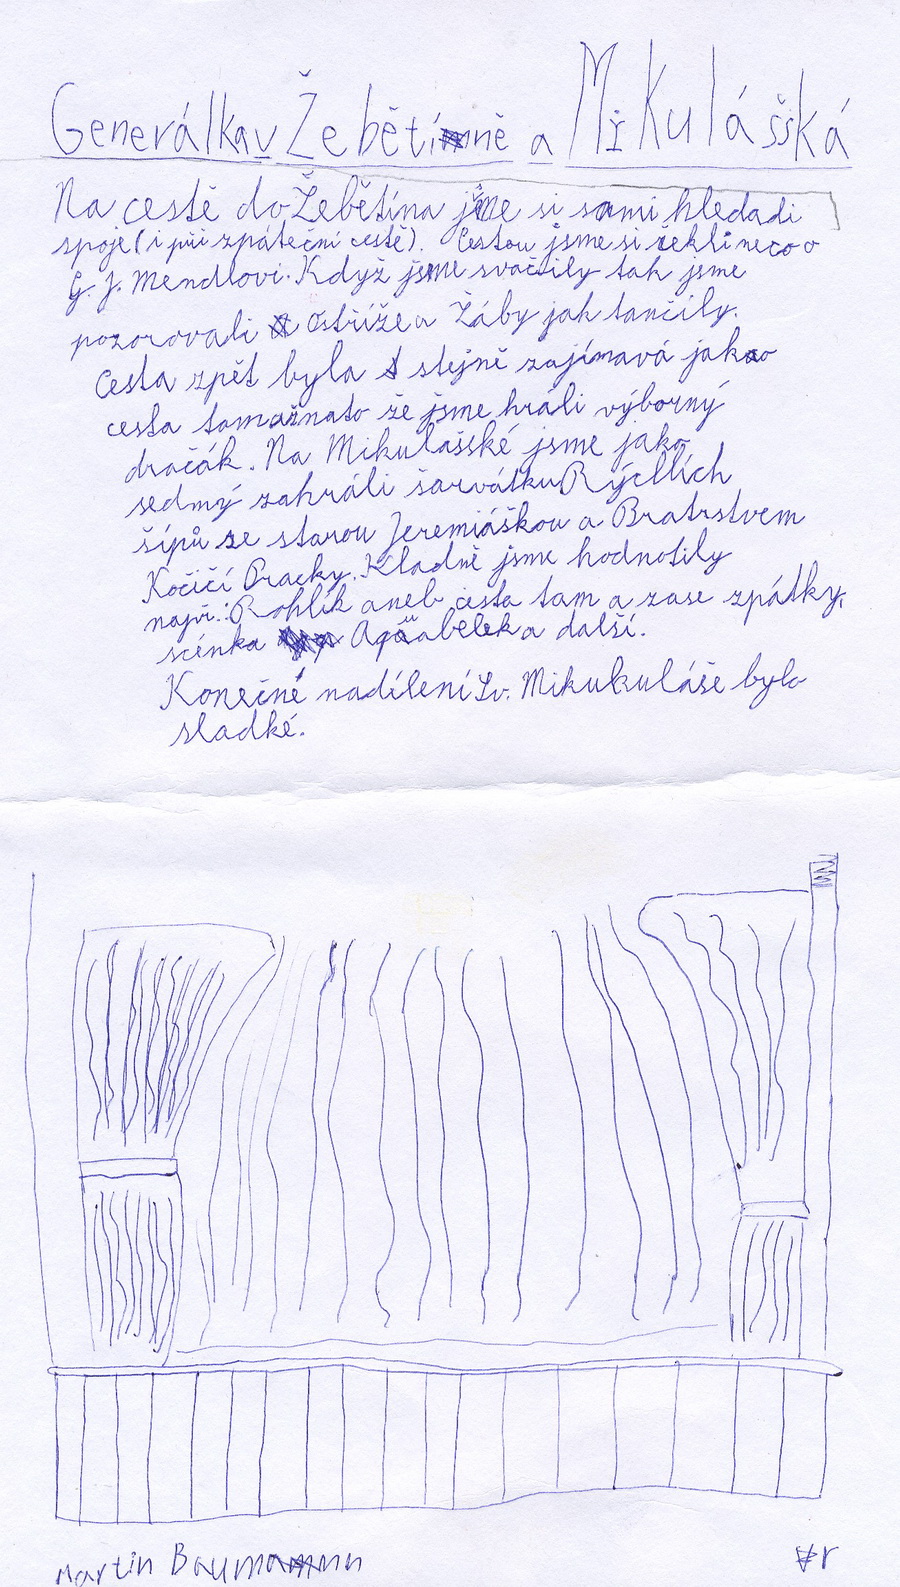 Generálka v Žebětíně a Mikulášská
Na cestě do Žebětína jsme si sami hledadi
spoje (i při zpáteční cestě). Cestou jsme si řekli neco o
G. J. Mendlovi. Když jsme svačily tak jsme
pozorovali Ostříže a Žáby jak tančily.
Cesta zpět byla stejně zajímavá jako
cesta tam ažnato že jsme hráli výborný
dračák. Na Mikulašské jsme jako
sedmý zahráli šarvátku Rýchlích
šípů ze starou Jeremiáškou a Bratrstvem
Kočičí Pracky. Kladně jsme hodnotily
např.: Rohlík aneb cesta tam a zase zpátky,
scénka a další.
Konečné nadílení Sv. Mikukuláše bylo
sladké.
Martin Baumann